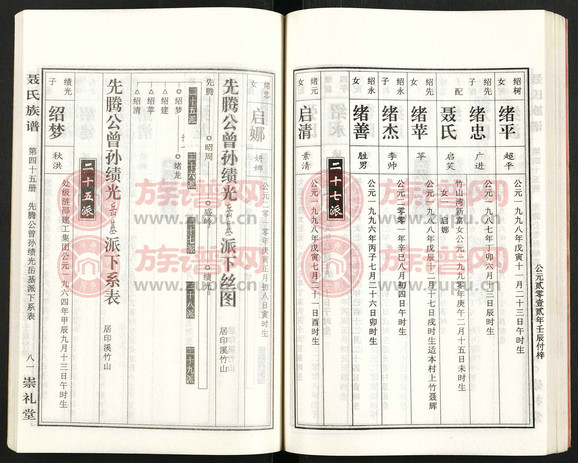 公元贰零壹贰年壬辰付梓
绍树
女
绪平
超平
公元一九九八年戊寅十一月二十三日午时生
绍先
子
绪忠
广进
公元一九八七年丁卯六月十二日辰时生
配
聂氏
启笑
竹山湾新富女公元一九九〇年庚午二月十五日未时生
女
启娜
绍先
女
绪苹
苹
公元一九八八年戊辰十二月十七日戌时生适本村上竹聂辉
绍永
子
绪杰
季帅
公元二零零一年辛巳八月初四日午时生
绍永
女
绪善
胜男
公元一九九六年丙子七月二十六日卯时生
二十七派
绪元
女
启清
素清
公元一九九八年戊寅七月二十一日酉时生
绪忠
女
启娜
妍娜
公元二零一零年庚寅正月初八日寅时生
先腾公曾孙绩光岳基派下丝图
居印溪竹山
二十五派
二十六派
二十七派
二十八派
二十九派
先腾
昭周
盛岭
绩光
绍梦
绪龙
绍建
绍苹
绍清
先腾公曾孙绩光岳基派下系表
居印溪竹山
二十五派
绩光
子
绍梦
秋洪
公元一九六四年甲辰九月十三日午时生
聂氏族谱
第四十五册
先腾公曾孙绩光岳基派下系表
八一
崇礼堂
族谱网
www.zupu.cn
族谱网
www.zupu.cn